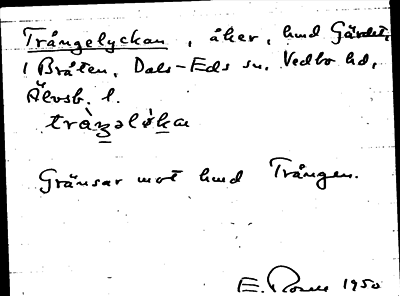 Trångelyckan, åker, hmd Gärdet,
1 Bråten, Dals-Eds sn, Vedbo hd,
Älvsb. l.
Gränsar mot hmd Trången.
E. 1950